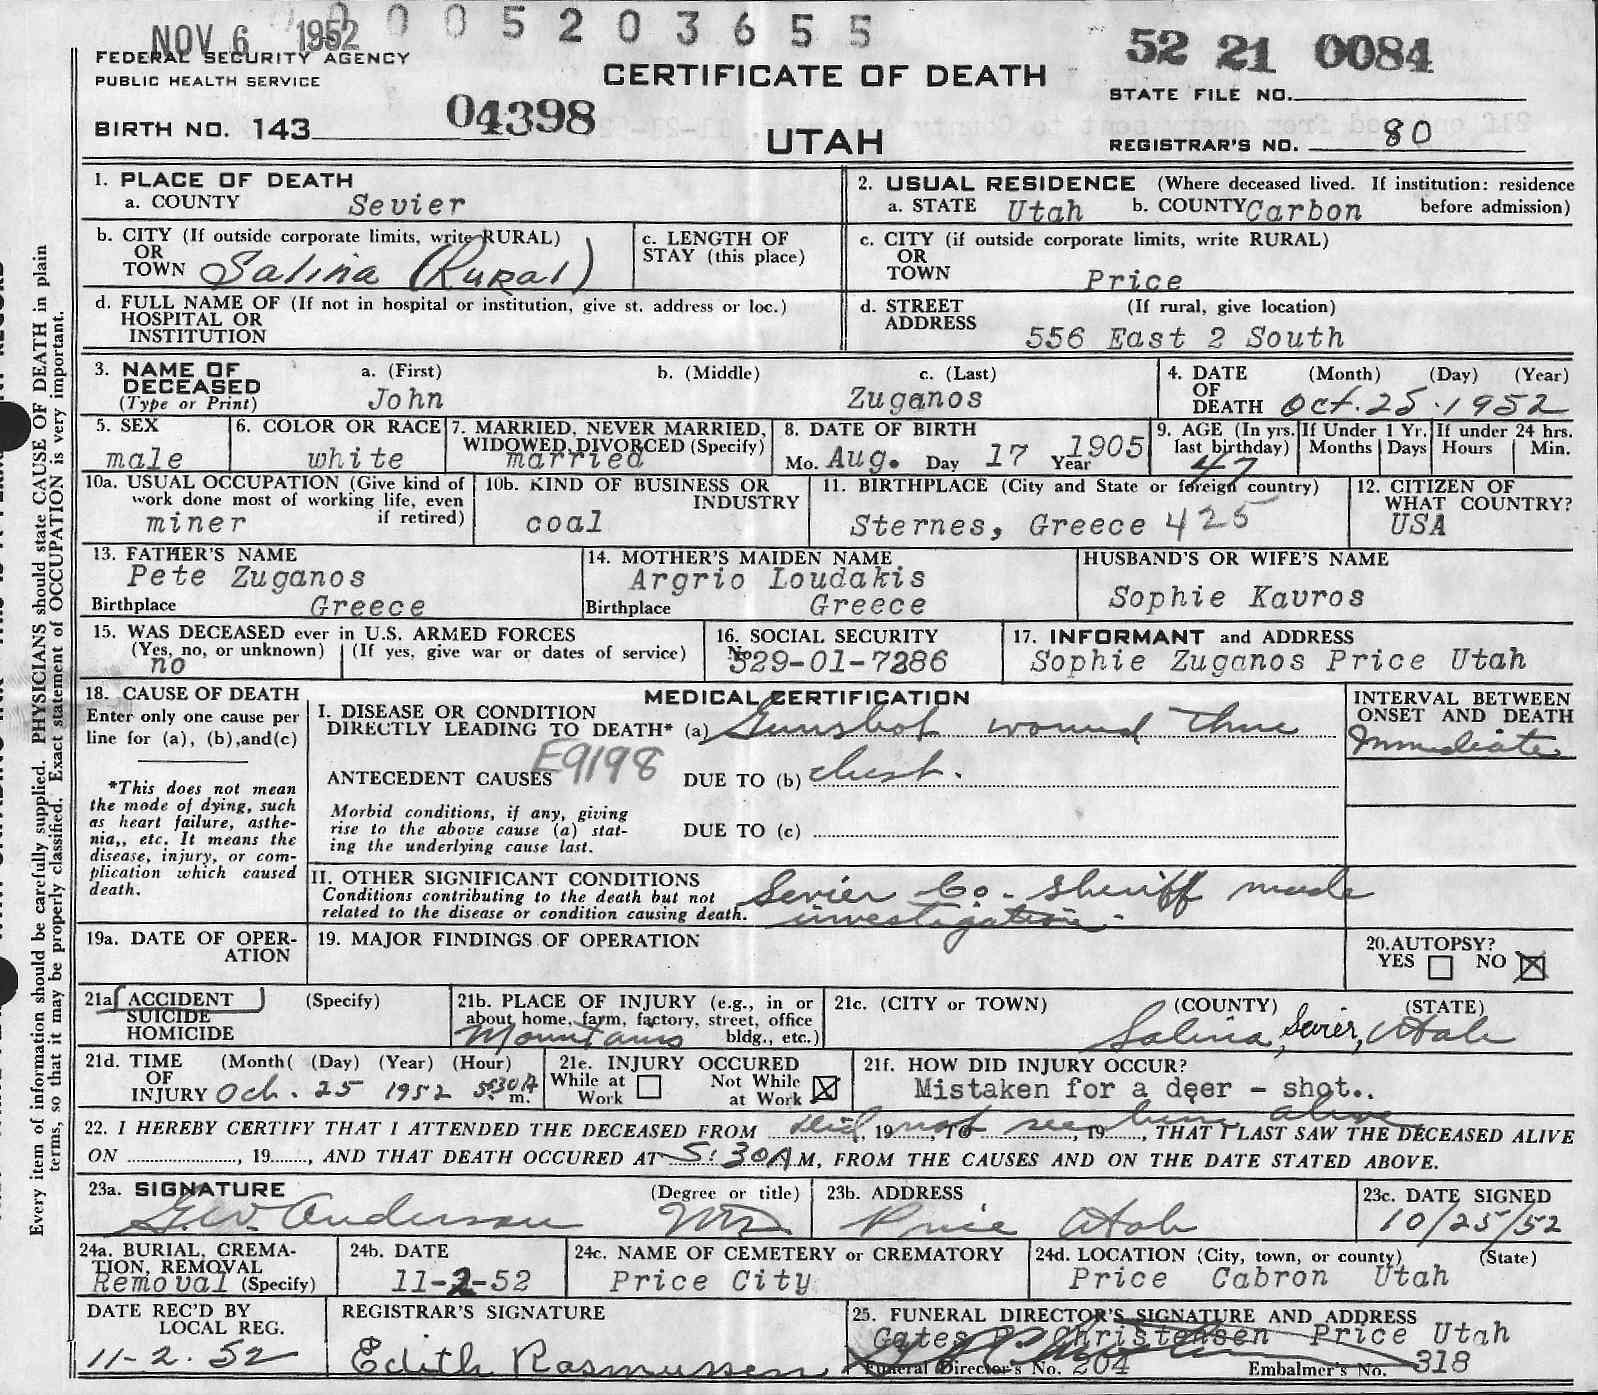 NOV 6 1952
0 0 0 5 2 0 3 6 5 5
52 21 0084
FEDERAL SECURITY AGENCY
PUBLIC HEALTH SERVICE
CERTIFICATE OF DEATH
STATE FILE NO.
BIRTH NO. 143
04398
UTAH
REGISTRAR'S NO. 80
1. PLACE OF DEATH
a. COUNTY Sevier
2. USUAL RESIDENCE (Where deceased lived. If institution: residence before admission)
a. STATE Utah b. COUNTY Carbon
b. CITY (If outside corporate limits, write RURAL)
OR
TOWN Salina (Rural)
c. LENGTH OF
STAY (this place)
c. CITY (if outside corporate limits, write RURAL)
OR
TOWN Price
d. FULL NAME OF (If not in hospital or institution, give st. address or loc.)
HOSPITAL OR
INSTITUTION
d. STREET (If rural, give location)
ADDRESS
556 East 2 South
3. NAME OF a. (First) b. (Middle) c. (Last)
DECEASED
(Type or Print) John Zuganos
4. DATE (Month) (Day) (Year)
OF
DEATH Oct. 25. 1952
5. SEX
male
6. COLOR OR RACE
white
7. MARRIED, NEVER MARRIED,
WIDOWED, DIVORCED (Specify)
married
8. DATE OF BIRTH
Mo. Aug. Day 17 Year 1905
9. AGE (In yrs. last birthday)
47
If Under 1 Yr.
Months Days
If under 24 hrs.
Hours Min.
10a. USUAL OCCUPATION (Give kind of
work done most of working life, even
if retired)
miner
10b. KIND OF BUSINESS OR
INDUSTRY
coal
11. BIRTHPLACE (City and State or foreign country)
Sternes, Greece 425
12. CITIZEN OF
WHAT COUNTRY?
USA
13. FATHER'S NAME
Pete Zuganos
Birthplace Greece
14. MOTHER'S MAIDEN NAME
Argrio Loudakis
Birthplace Greece
HUSBAND'S OR WIFE'S NAME
Sophie Kavros
15. WAS DECEASED ever in U.S. ARMED FORCES
(Yes, no, or unknown) (If yes, give war or dates of service)
no
16. SOCIAL SECURITY
No.
529-01-7286
17. INFORMANT and ADDRESS
Sophie Zuganos Price Utah
18. CAUSE OF DEATH
Enter only one cause per
line for (a), (b),and(c)
*This does not mean
the mode of dying, such
as heart failure, asthe-
nia,, etc. It means the
disease, injury, or com-
plication which caused
death.
MEDICAL CERTIFICATION
I. DISEASE OR CONDITION
DIRECTLY LEADING TO DEATH* (a) Gunshot wound thru
E9198
ANTECEDENT CAUSES DUE TO (b) chest.
Morbid conditions, if any, giving
rise to the above cause (a) stat-
ing the underlying cause last.
DUE TO (c)
INTERVAL BETWEEN
ONSET AND DEATH
Immediate
II. OTHER SIGNIFICANT CONDITIONS
Conditions contributing to the death but not
related to the disease or condition causing death.
Sevier Co. Sheriff made
investigation.
19a. DATE OF OPER-
ATION
19. MAJOR FINDINGS OF OPERATION
20.AUTOPSY?
YES NO X
21a. ACCIDENT (Specify)
SUICIDE
HOMICIDE
21b. PLACE OF INJURY (e.g., in or
about home, farm, factory, street, office
bldg., etc.)
Mountains
21c. (CITY or TOWN) (COUNTY) (STATE)
Salina, Sevier, Utah
21d. TIME (Month( (Day) (Year) (Hour)
OF
INJURY Oct. 25 1952 5:30 A m.
21e. INJURY OCCURED
While at Work Not While at Work X
21f. HOW DID INJURY OCCUR?
Mistaken for a deer - shot..
22. I HEREBY CERTIFY THAT I ATTENDED THE DECEASED FROM did, 19 not, TO see him, 19 alive, THAT I LAST SAW THE DECEASED ALIVE
ON , 19 , AND THAT DEATH OCCURED AT 5:30 A M, FROM THE CAUSES AND ON THE DATE STATED ABOVE.
23a. SIGNATURE (Degree or title)
G.W. Anderson MD
23b. ADDRESS
Price Utah
23c. DATE SIGNED
10/25/52
24a. BURIAL, CREMA-
TION, REMOVAL
Removal (Specify)
24b. DATE
11-2-52
24c. NAME OF CEMETERY or CREMATORY
Price City
24d. LOCATION (City, town, or county) (State)
Price Cabron Utah
DATE REC'D BY
LOCAL REG.
11-2-52
REGISTRAR'S SIGNATURE
Edith Rasmussen
25. FUNERAL DIRECTOR'S SIGNATURE AND ADDRESS
Christensen Price Utah
Funeral Director's No. 204 Embalmer's No. 318
Every item of information should be carefully supplied. PHYSICIANS should state CAUSE OF DEATH in plain
terms, so that it may be properly classified. Exact statement of OCCUPATION is very important.